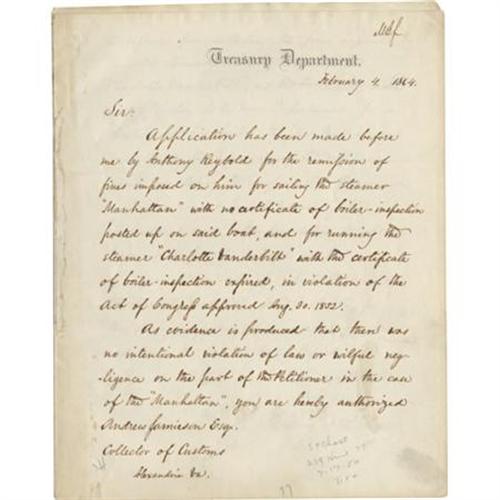 Treasury Department.
February 4. 1864.
Sir:
Application has been made before
me by Anthony Reybold for the remission of
fines imposed on him for sailing the steamer
"Manhattan" with no certificate of boiler-inspection
posted up on said boat, and for running the
steamer "Charlotte Vanderbilt" with the certificate
of boiler-inspection expired, in violation of the
Act of Congress approved Aug. 30. 1852.
As evidence is produced that there was
no intentional violation of law or wilful neg-
-ligence on the part of the Petitioner in the case
of the "Manhattan", you are hereby authorized
Andrew Jamieson Esq.
Collector of Customs
Alexandria Va.